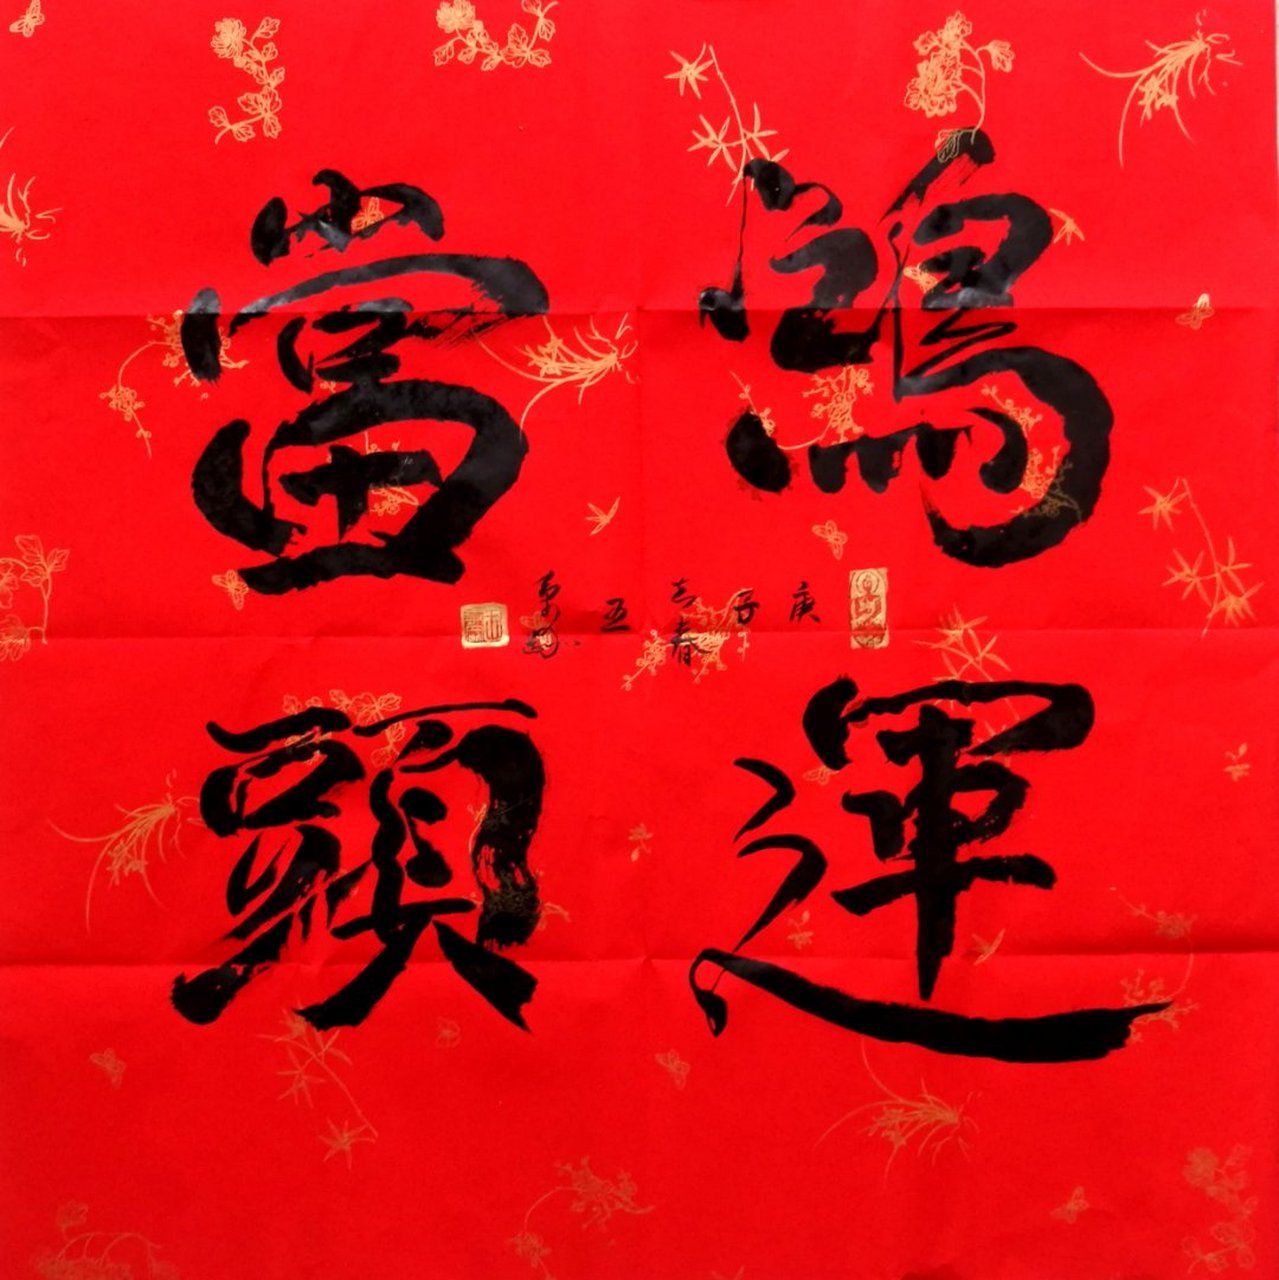 鴻運
當頭
庚子立春
五